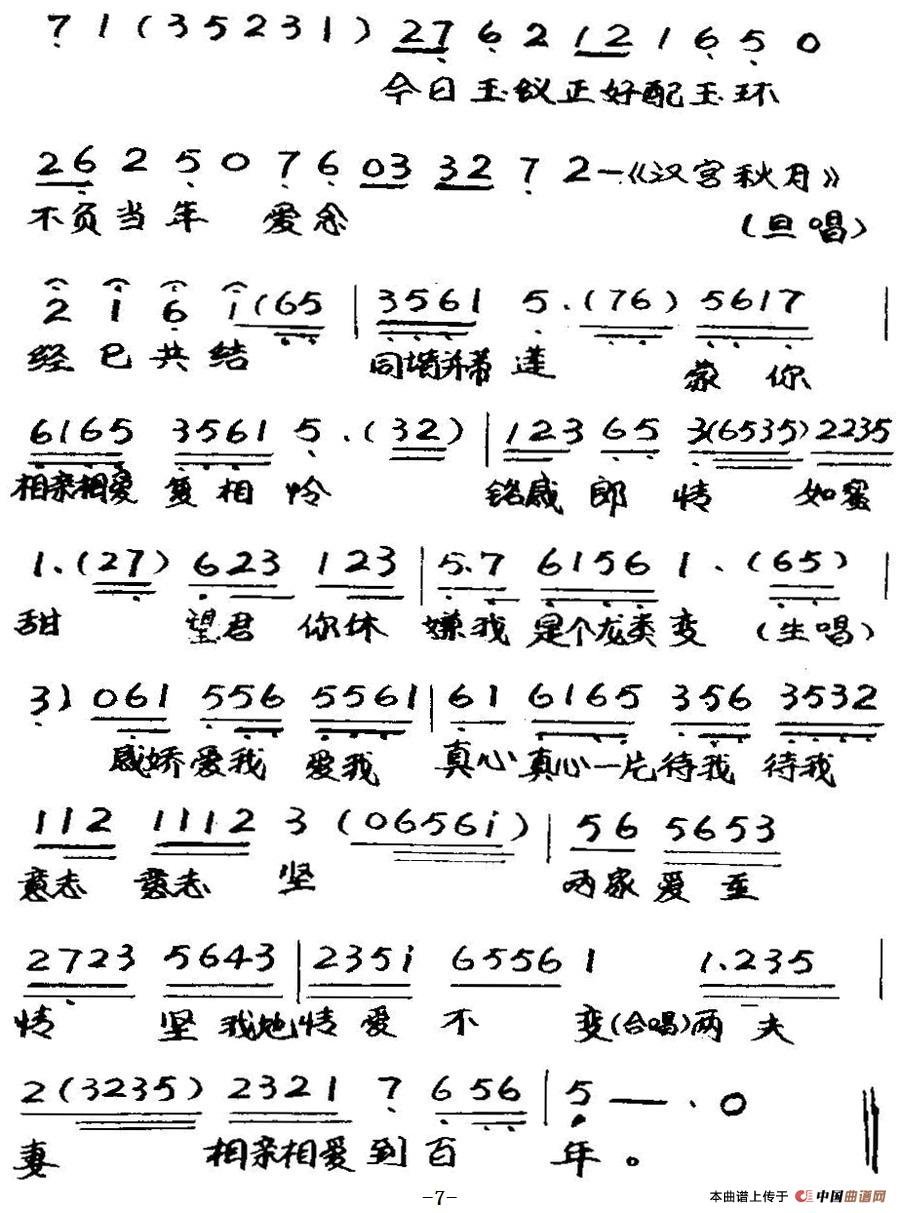 7 1 ( 3 5 2 3 1 ) 27 6 2 12 1 6 5 0
今日玉蚁正好配玉环
26 2 5 0 7 6 03 32 7 2 — 《汉宫秋月》
不负当年 爱念 (旦唱)
2 1 6 i(65 | 3561 5.(76) 5617 |
经已共结 同墙并蒂 莲 蒙 你
6165 3561 5.(32) | 123 65 3(6535) 2235
相亲相爱 复相 怜 铭感 郎 情 如蜜
1.(27) 623 123 | 5.7 6156 1.(65) |
甜 望君 你休 嫌我 是个龙类 变 (生唱)
3) 061 556 5561 | 61 6165 356 3532
感娇 爱我 爱我 真心 真心一片 待我 待我
112 1112 3 (0656i) | 56 5653
意志 意志 坚 两家 爱 至
2723 5643 | 235i 6556 1 1.235 |
情 坚 我地 情 爱 不 变 (合唱) 两 夫
2(3235) 2321 7 656 | 5 — . 0
妻 相亲相爱 到 百 年。
-7-
本曲谱上传于 中国曲谱网